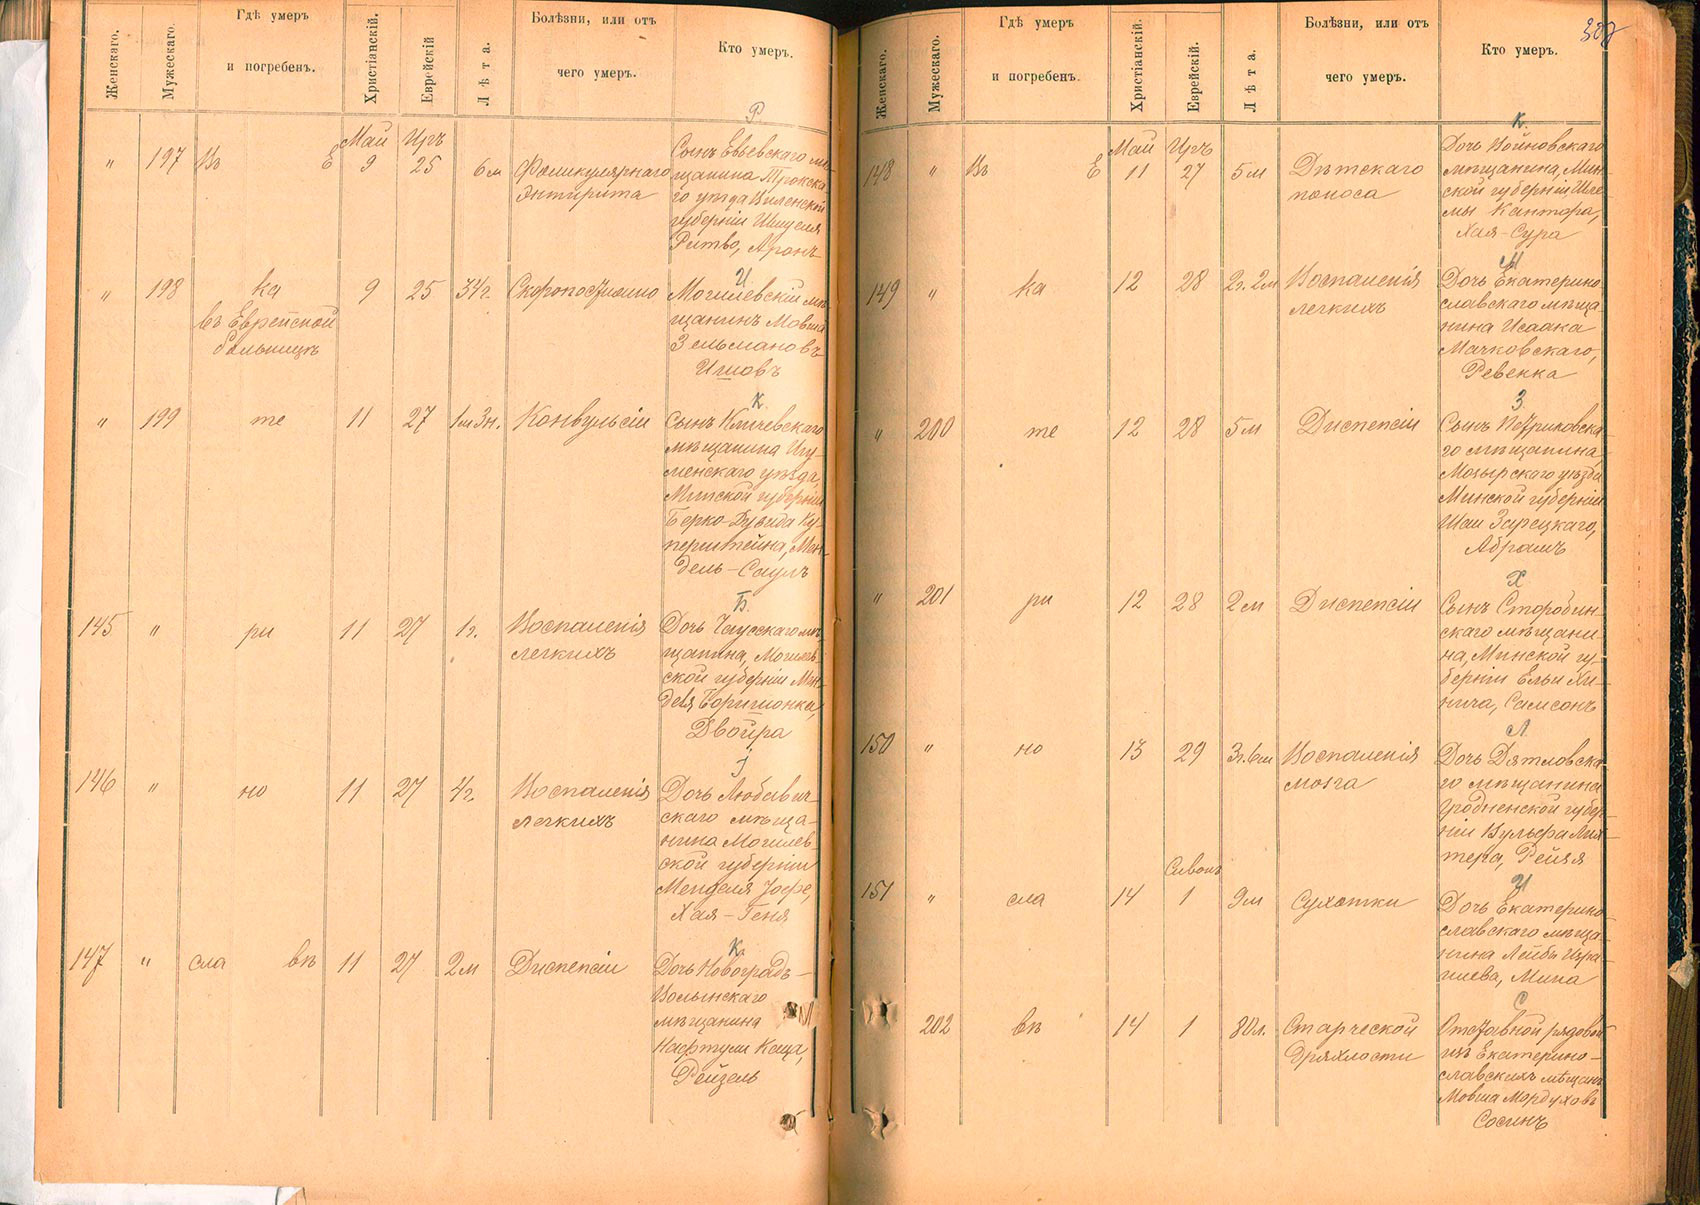 Женскаго.
Мужескаго.
Гдѣ умеръ
и погребенъ.
Христіанскій.
Еврейскій
Лѣта.
Болѣзни, или отъ
чего умеръ.
Кто умеръ.
Р.
Май Иръ
„ 197 Въ Е 9 25 6м Фоликулярнаго
энтирита
Сынъ Евьевскаго мѣ-
щанина Трокска-
го уѣзда Виленской
губерніи Шмуеля
Ритво, Аронъ
И
„ 198 ка 9 25 34г. Скоропостижно
въ Еврейской
больницѣ
Могилевскій мѣ-
щанинъ Мовша
Зельмановъ
К.
„ 199 те 11 27 1м3н. Конвульсіи
Сынъ Кличевскаго
мѣщанина Игу-
менскаго уѣзда,
Минской губерніи
Берко-Дувида Ку-
перштейна, Мен-
дель-Саулъ
Б.
145 „ ри 11 27 1г. Воспаленія
легкихъ
Дочь Чаусскаго мѣ-
щанина, Могилев-
ской губерніи Мен-
деля
Двойра
І
146 „ но 11 27 4г. Воспаленія
легкихъ
Дочь Любавич-
скаго мѣща-
нина Могилев-
ской губерніи
Менделя Іофе,
Хая-Геня
К.
147 „ сла въ 11 27 2м Диспепсіи
Дочь Новоградъ-
Волынскаго
мѣщанина
Нафтули Каца,
Рейзель
Женскаго.
Мужескаго.
Гдѣ умеръ
и погребенъ.
Христіанскій.
Еврейскій.
Лѣта.
Болѣзни, или отъ
чего умеръ.
Кто умеръ.
К.
Май Иръ
148 „ Въ Е 11 27 5м Дѣтскаго
поноса
Дочь Войновскаго
мѣщанина, Мин-
ской губерніи Шле-
мы Кантора,
Хая-Сура
М
149 „ ка 12 28 2г.2м Воспаленія
легкихъ
Дочь Екатерино-
славскаго мѣща-
нина Исаака
Мачковскаго,
Ревекка
З.
„ 200 те 12 28 5м Диспепсіи
Сынъ Петриковска-
го мѣщанина,
Мозырскаго уѣзда
Минской губерніи
Шаи Зарецкаго,
Абрамъ
Х
„ 201 ри 12 28 2м Диспепсіи
Сынъ Старобин-
скаго мѣщани-
на, Минской гу-
берніи Ельи Хи-
нича, Самсонъ
Л.
150 „ но 13 29 3г.6м Воспаленія
мозга
Дочь Дятловска-
го мѣщанина
Гродненской губер-
ніи Вульфа
Рейзя
Сивонъ
И
151 „ сла 14 1 9м Сухотки
Дочь Екатерино-
славскаго мѣща-
нина Лейбы Изра-
илева, Мина
С
202 въ 14 1 80л. Старческой
дряхлости
Отставной рядовой
изъ Екатерино-
славскихъ мѣщанъ
Мовша Мордуховъ
Сосинъ